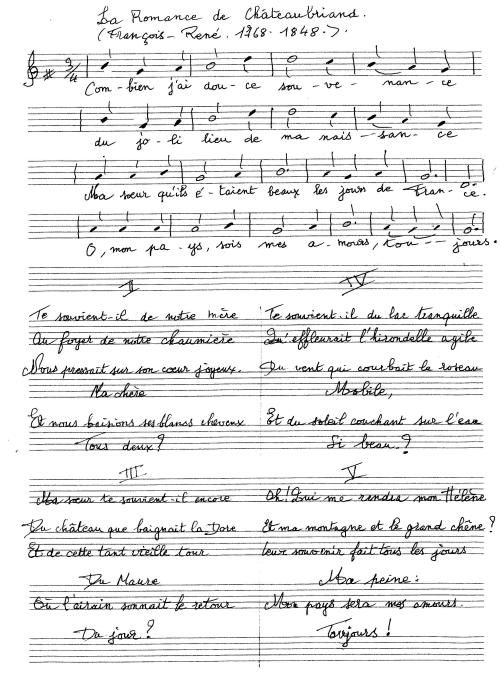 La Romance de Châteaubriand.
(François-René. 1768. 1848.).
3/4
Com-bien j'ai dou-ce sou-ve-nan-ce
du jo-li lieu de ma nais-san-ce
Ma sœur qu'ils é-taient beaux les jours de Fran-ce.
O, mon pa-ys, sois mes a-mours, tou-jours.
II
Te souvient-il de notre mère
Au foyer de notre chaumière
Nous pressait sur son cœur joyeux.
Ma chère
Et nous baisions ses blancs cheveux
Tous deux?
III
Ma sœur te souvient-il encore
Du château que baignait la Dore
Et de cette tant vieille tour
Du Maure
Où l'airain sonnait le retour
Du jour?
IV
Te souvient-il du lac tranquille
Qu'effleurait l'hirondelle agile
Du vent qui courbait le roseau
Mobile,
Et du soleil couchant sur l'eau
Si beau?
V
Oh! Qui me rendra mon Hélène
Et ma montagne et le grand chêne?
leur souvenir fait tous les jours
Ma peine:
Mon pays sera mes amours.
Toujours!